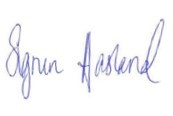 Sigrun Aasland